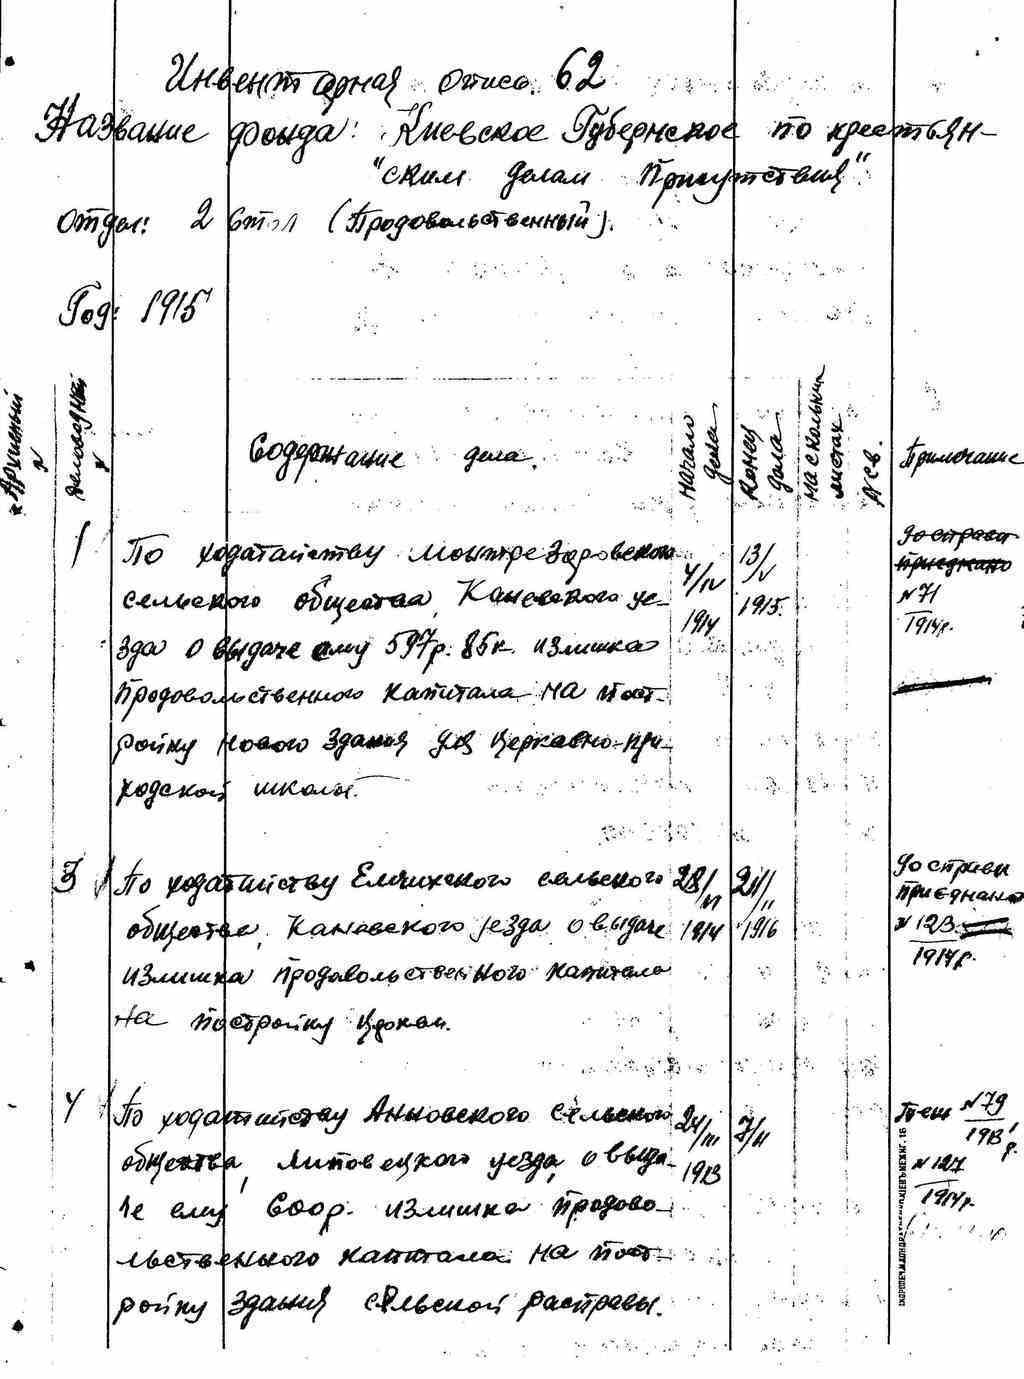 Инвентарная опись 62
Название фонда: Киевское Губернское по крестьян-
"ским делам Присутствия"
Отдел: 2 стол (Продовольственный).
Год: 1915
Архивный №
деловодный №
Содержание дела.
Начало дела
Конец дела
На скольких листах
Примечание
1 По ходатайству Монтрезоровского
сельского общества, Каневского уе-
зда о выдаче ему 597р. 85к. излишка
продовольственного капитала на пост-
ройку нового здания для церковно-при-
ходской школы.
4/IV 1914
13/V 1915.
№ 71
1914г.
3 По ходатайству Емчихского сельского
общества, Каневского уезда о выдаче
излишка продовольственного капитала
на постройку церкви.
28/VI 1914
21/II 1916
До справи
приєднано
№ 123
1914г.
4 По ходатайству Анновского сельского
общества, Липовецкого уезда, о выда-
че ему 600р. излишка продово-
льственного капитала на пост-
ройку здания сельской расправы.
24/III 1913
7/II
№ 79
1913г.
№ 127
1914г.